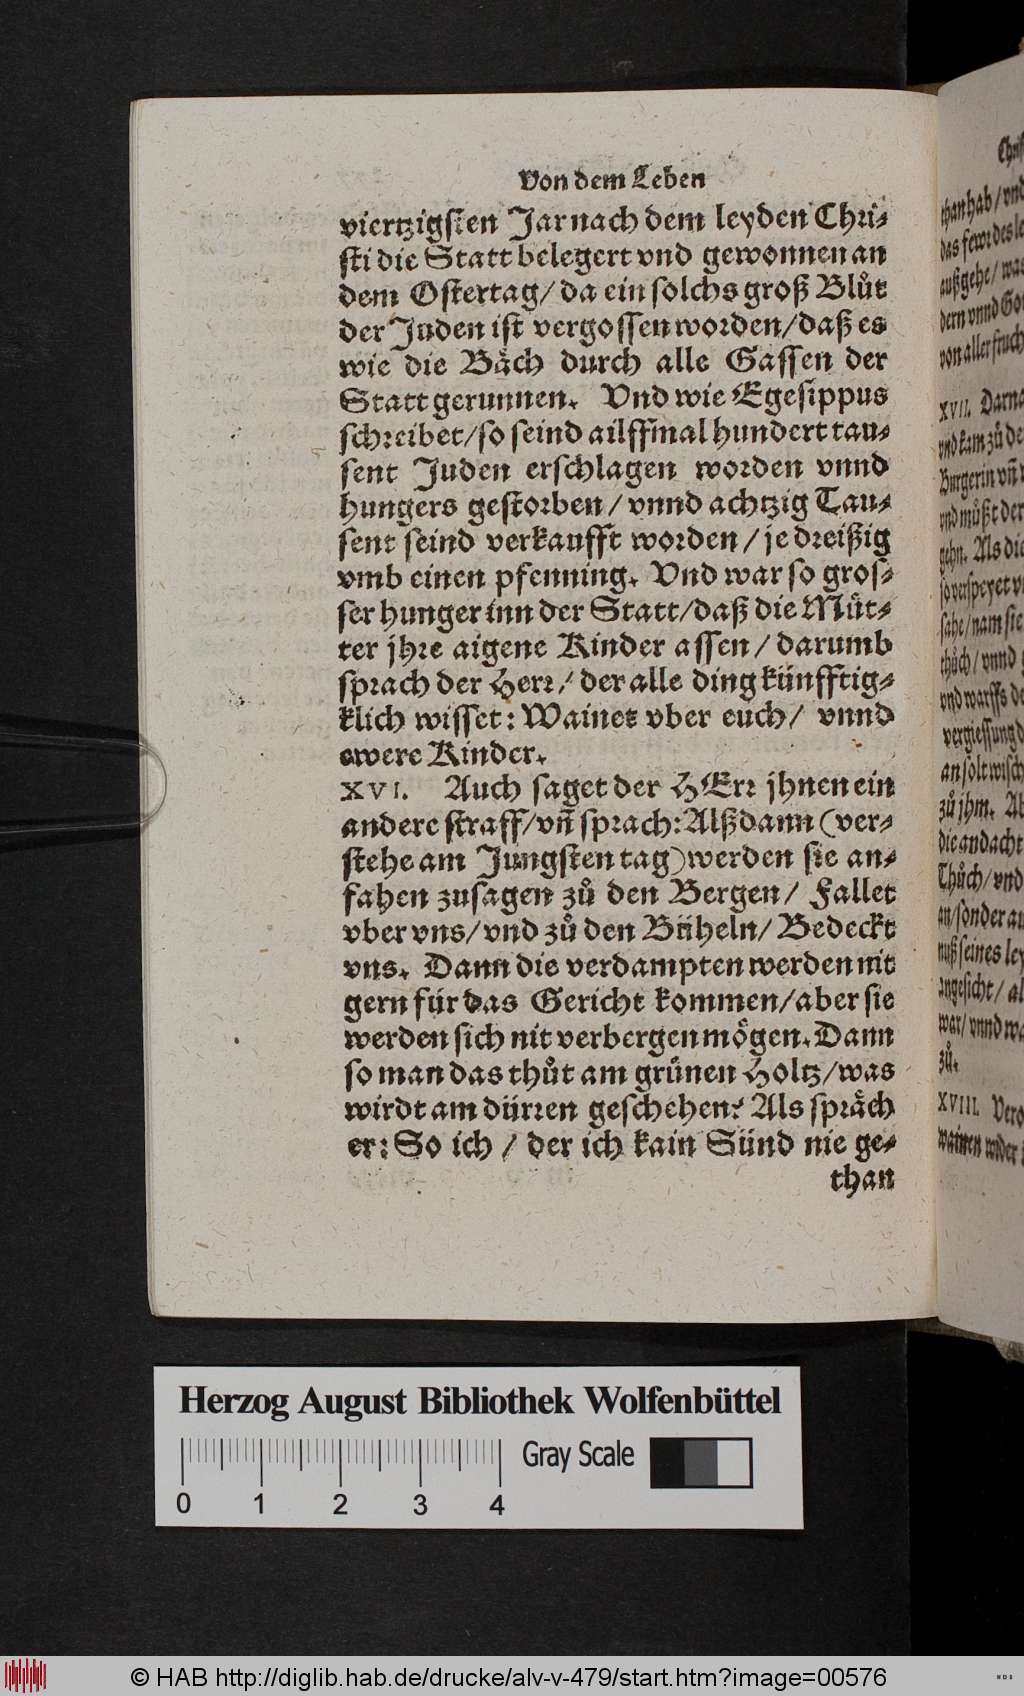 Von dem Leben
viertzigsten Jar nach dem leyden Chri-
sti die Statt belegert vnd gewonnen an
dem Ostertag/ da ein solchs groß Blůt
der Juden ist vergossen worden/ daß es
wie die Bäch durch alle Gassen der
Statt gerunnen. Vnd wie Egesippus
schreibet/ so seind ailffmal hundert tau-
sent Juden erschlagen worden vnnd
hungers gestorben/ vnnd achtzig Tau-
sent seind verkaufft worden/ je dreißig
vmb einen pfenning. Vnd war so gros-
ser hunger inn der Statt/ daß die Müt-
ter jhre aigene Kinder assen/ darumb
sprach der Herr/ der alle ding künfftig-
klich wisset: Wainet vber euch/ vnnd
ewere Kinder.
XVI. Auch saget der HErr jhnen ein
andere straff/ vñ sprach: Alßdann (ver-
stehe am Jungsten tag) werden sie an-
fahen zusagen zů den Bergen/ Fallet
vber vns/ vnd zů den Büheln/ Bedeckt
vns. Dann die verdampten werden nit
gern für das Gericht kommen/ aber sie
werden sich nit verbergen mögen. Dann
so man das thůt am grünen Holtz/ was
wirdt am dürren geschehen? Als spräch
er: So ich/ der ich kain Sünd nie ge-
than
than hab/ vnd
das fewr des le
außgehe/ was
dern vnnd Go
von aller fruch
XVII. Darna
vnd kam zů de
Burgerin vñ
vnd můßt der
gehn. Als die
so verspeyet v
sahe/ nam sie
thůch/ vnnd
vnd warffs de
vergiessung d
an solt wisch
zů jhm. Al
die andacht
Thůch/ vnd
an/ sonder au
nuß seines ley
angesicht/ al
war/ vnnd wa
zů.
XVIII. Vero
wainen wider
Herzog August Bibliothek Wolfenbüttel
Gray Scale
0 1 2 3 4
© HAB http://diglib.hab.de/drucke/alv-v-479/start.htm?image=00576